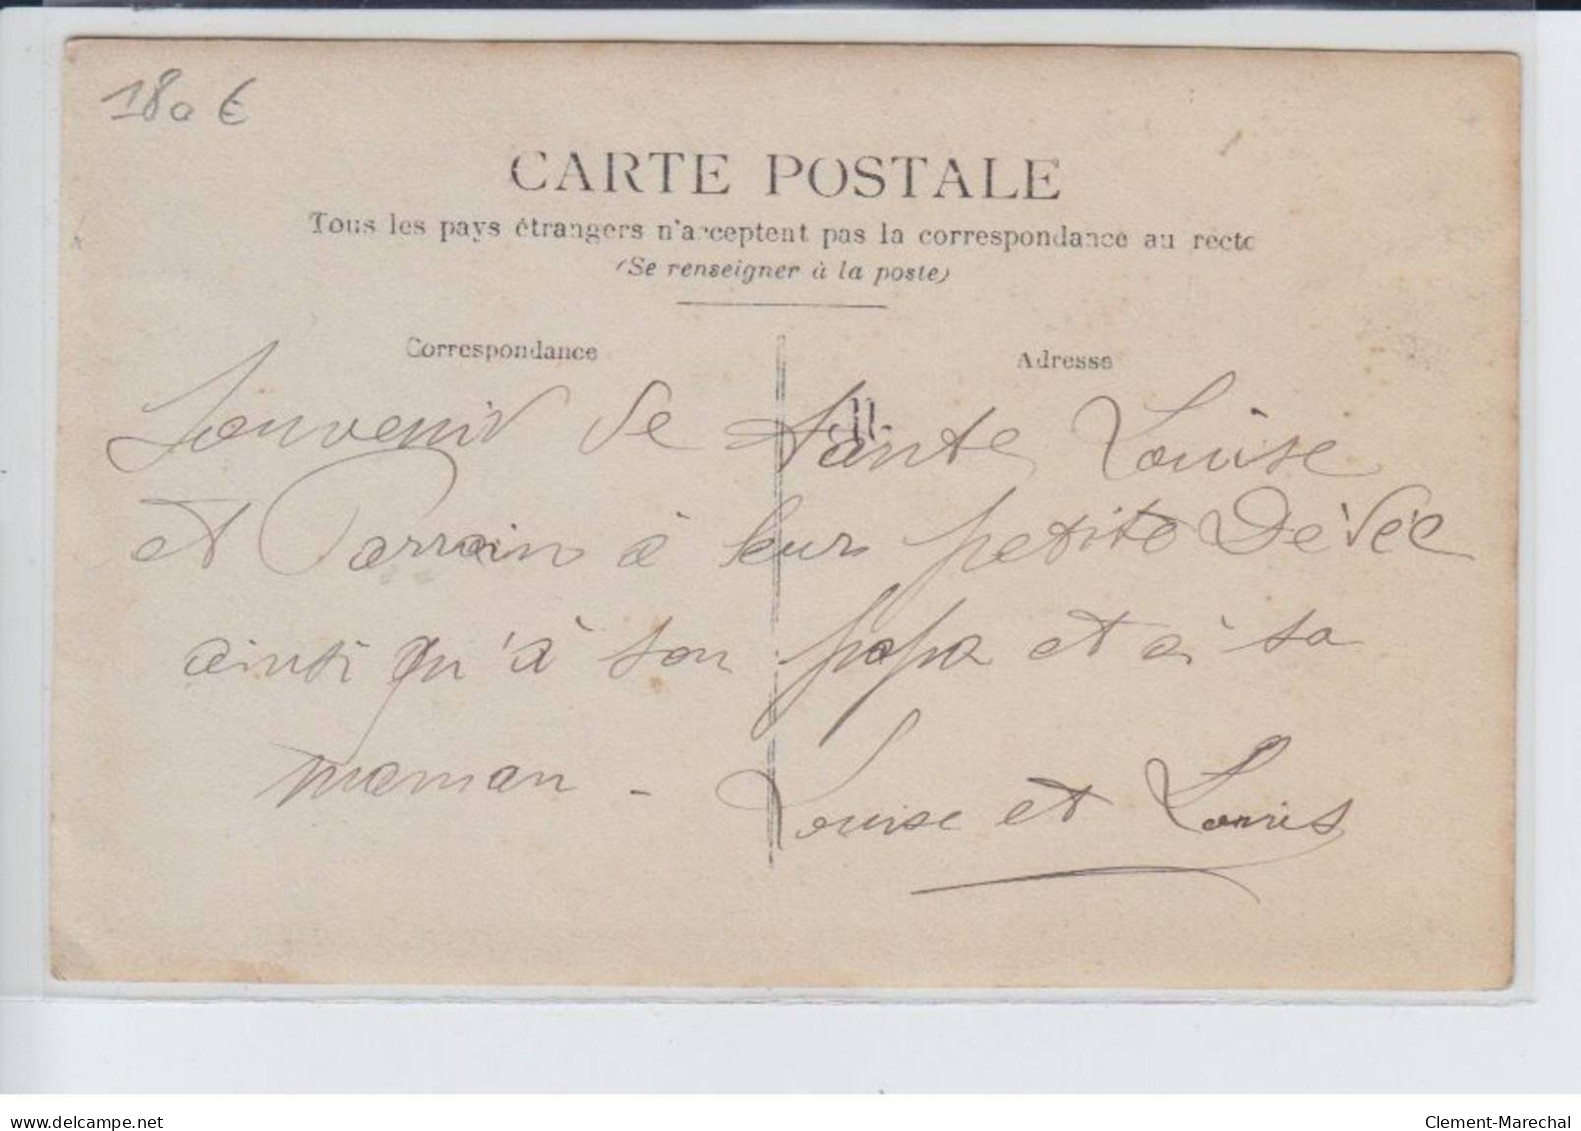 180 €
CARTE POSTALE
Tous les pays étrangers n'acceptent pas la correspondance au recto
(Se renseigner à la poste)
Correspondance
Adresse
Souvenir de tante Louise
et Parrain à leur petite Dédée
ainsi qu'à son papa et à sa
maman - Louise et Louis
www.delcampe.net
Clement-Marechal